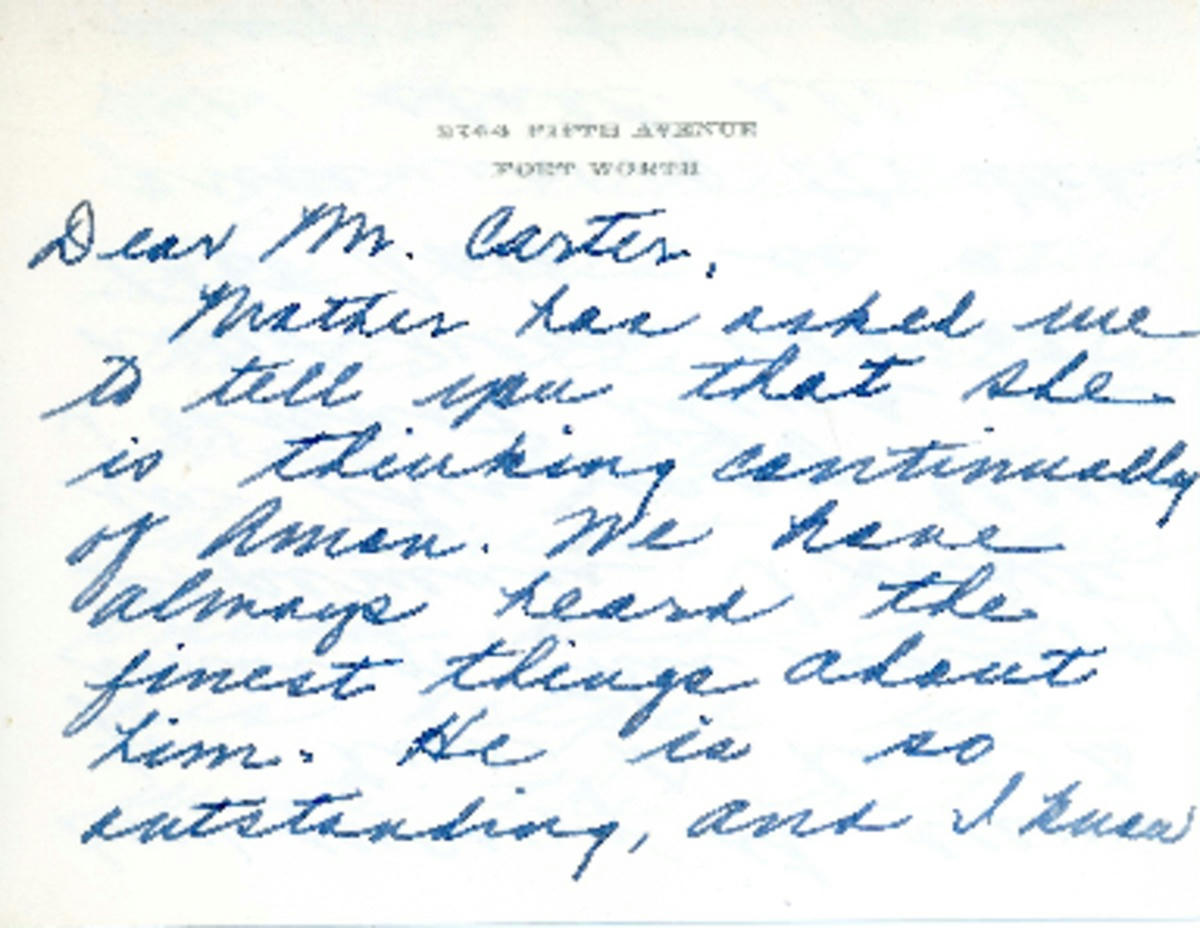 2744 FIFTH AVENUE
FORT WORTH
Dear Mr. Carter,
Mother has asked me
to tell you that she
is thinking continually
of Amon. We have
always heard the
finest things about
him. He is so
outstanding, and I know